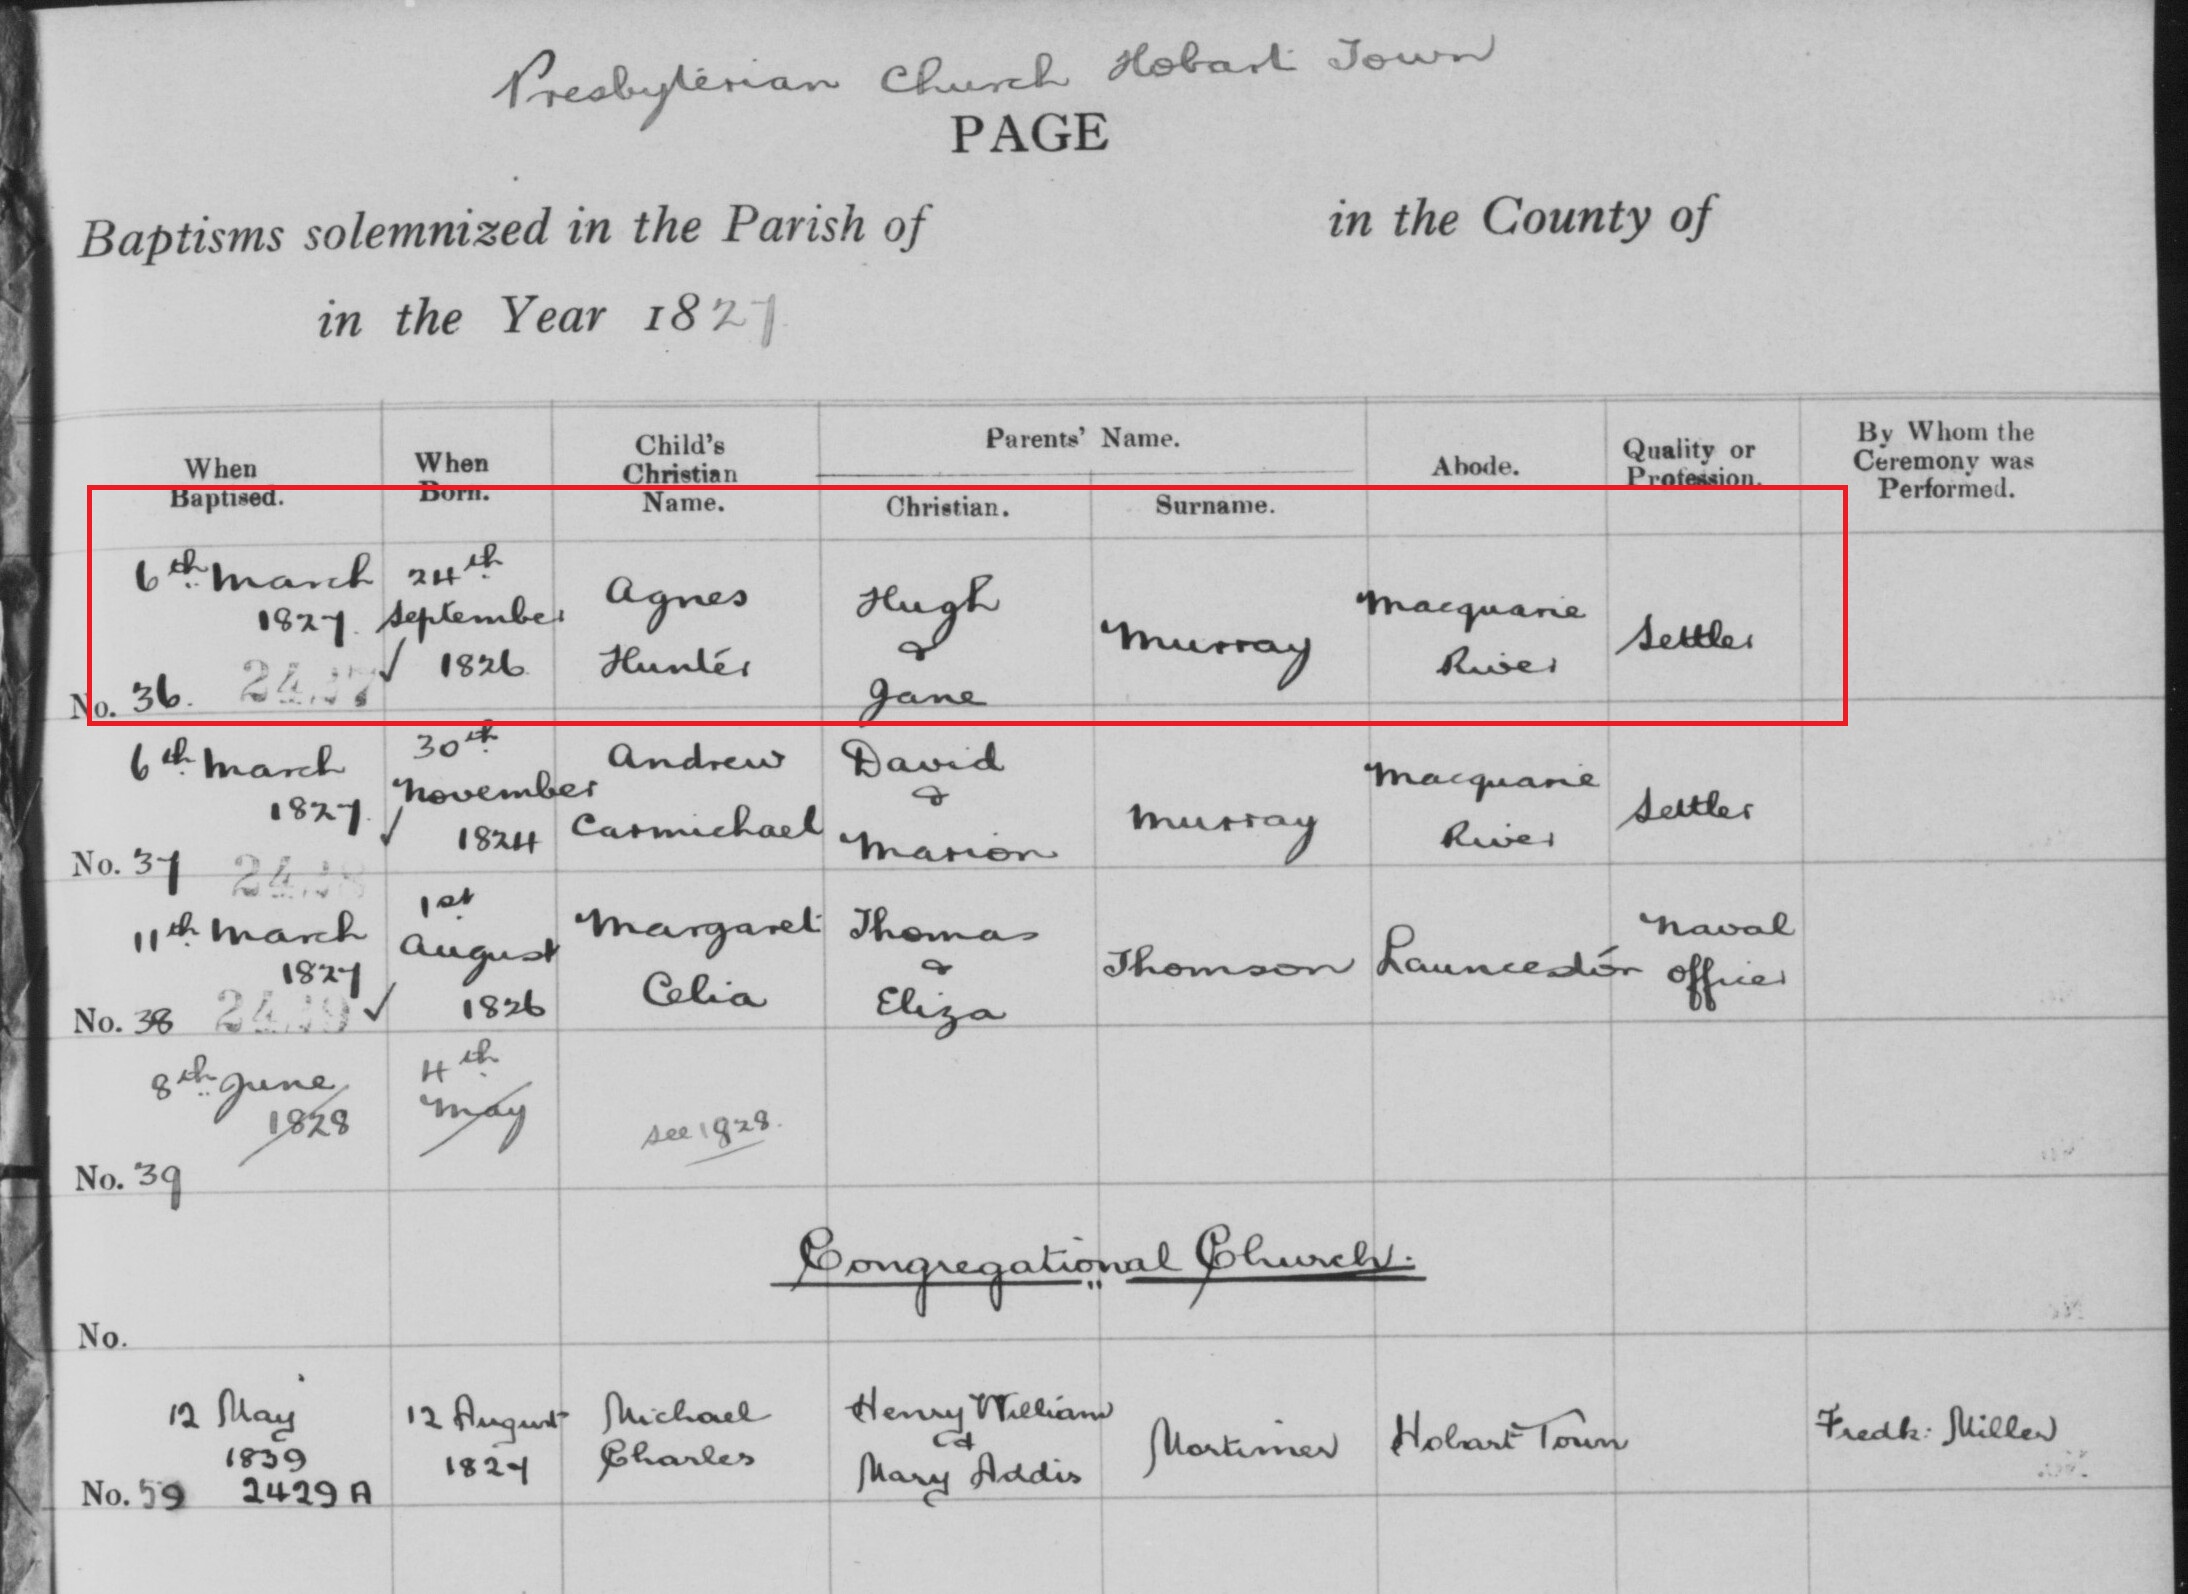 Presbyterian Church Hobart Town
PAGE
Baptisms solemnized in the Parish of in the County of
in the Year 1827
When Baptised.
When Born.
Child's Christian Name.
Parents' Name.
Christian.
Surname.
Abode.
Quality or Profession.
By Whom the Ceremony was Performed.
6th March 1827.
No. 36.
24th September 1826
Agnes Hunter
Hugh & Jane
Murray
Macquarie River
Settler
6th March 1827.
No. 37
30th November 1824
Andrew Carmichael
David & Marion
Murray
Macquarie River
Settler
11th March 1827
No. 38
1st August 1826
Margaret Celia
Thomas & Eliza
Thomson
Launceston
Naval Officer
8th June 1828
No. 39
4th May
see 1828.
Congregational Church.
No.
12 May 1839
No. 59 2429 A
12 August 1827
Michael Charles
Henry William & Mary Addis
Mortimer
Hobart Town
Fredk: Miller